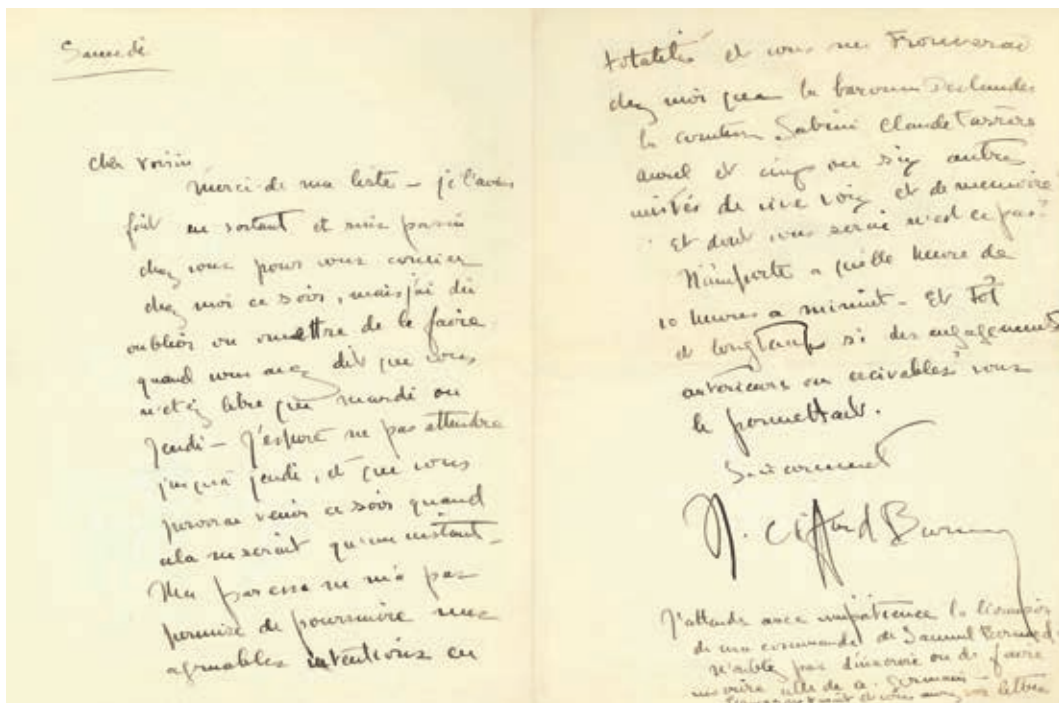 Samedi
cher voisin
Merci de ma liste – je l'avais
fait en sortant et suis passée
chez vous pour vous convier
chez moi ce soir, mais j'ai dû
oublier ou omettre de le faire
quand vous avez dit que vous
n'etiez libre que mardi ou
jeudi – J'espère ne pas attendre
jusqu'à jeudi, et que vous
pourrai venir ce soir quand
cela ne serait qu'un instant –
Ma paresse ne m'a pas
permise de poursuivre mes
agréables intentions en
totalité et vous ne trouverai
chez moi que la baronne Deslandes
la comtesse Sabini Claude Farrère
Aurel et cinq ou six autres
invités de vive voix et de memoire
Et dont vous serai n'est ce pas?
N'importe a quelle heure de
10 heures a minuit – Et tôt
et longtemps si des engagements
antérieurs ou
vous
le permettait.
Sincerement
N. Clifford Barney
J'attends avec impatience la livraison
de ma commande de Samuel Bernard,
n'oubliez pas d'inscrire ou de faire
inscrire celle de a. Germain –
et vous aurez vos lettres